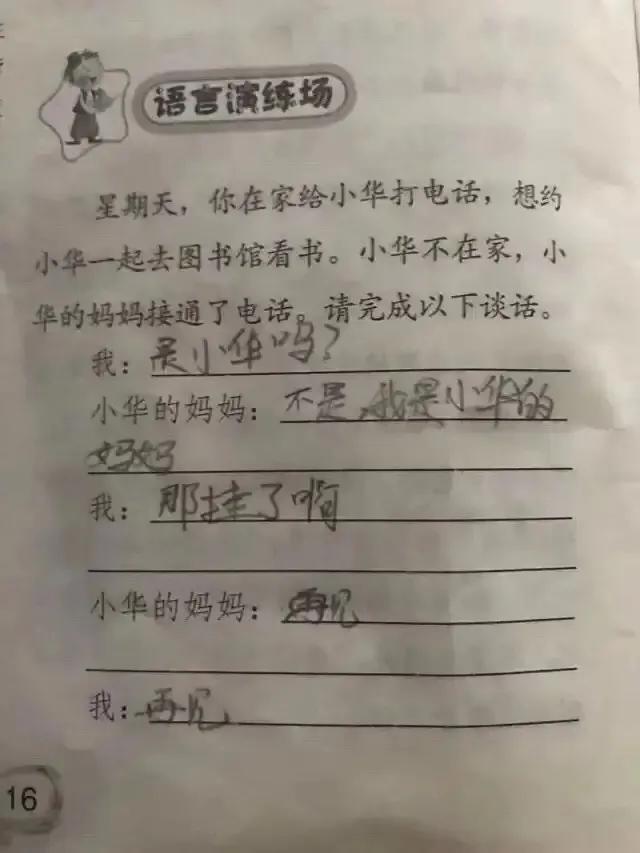 语言演练场
星期天，你在家给小华打电话，想约
小华一起去图书馆看书。小华不在家，小
华的妈妈接通了电话。请完成以下谈话。
我：是小华吗？
小华的妈妈：不是，我是小华的
妈妈
我：那挂了啊
小华的妈妈：再见
我：再见
16